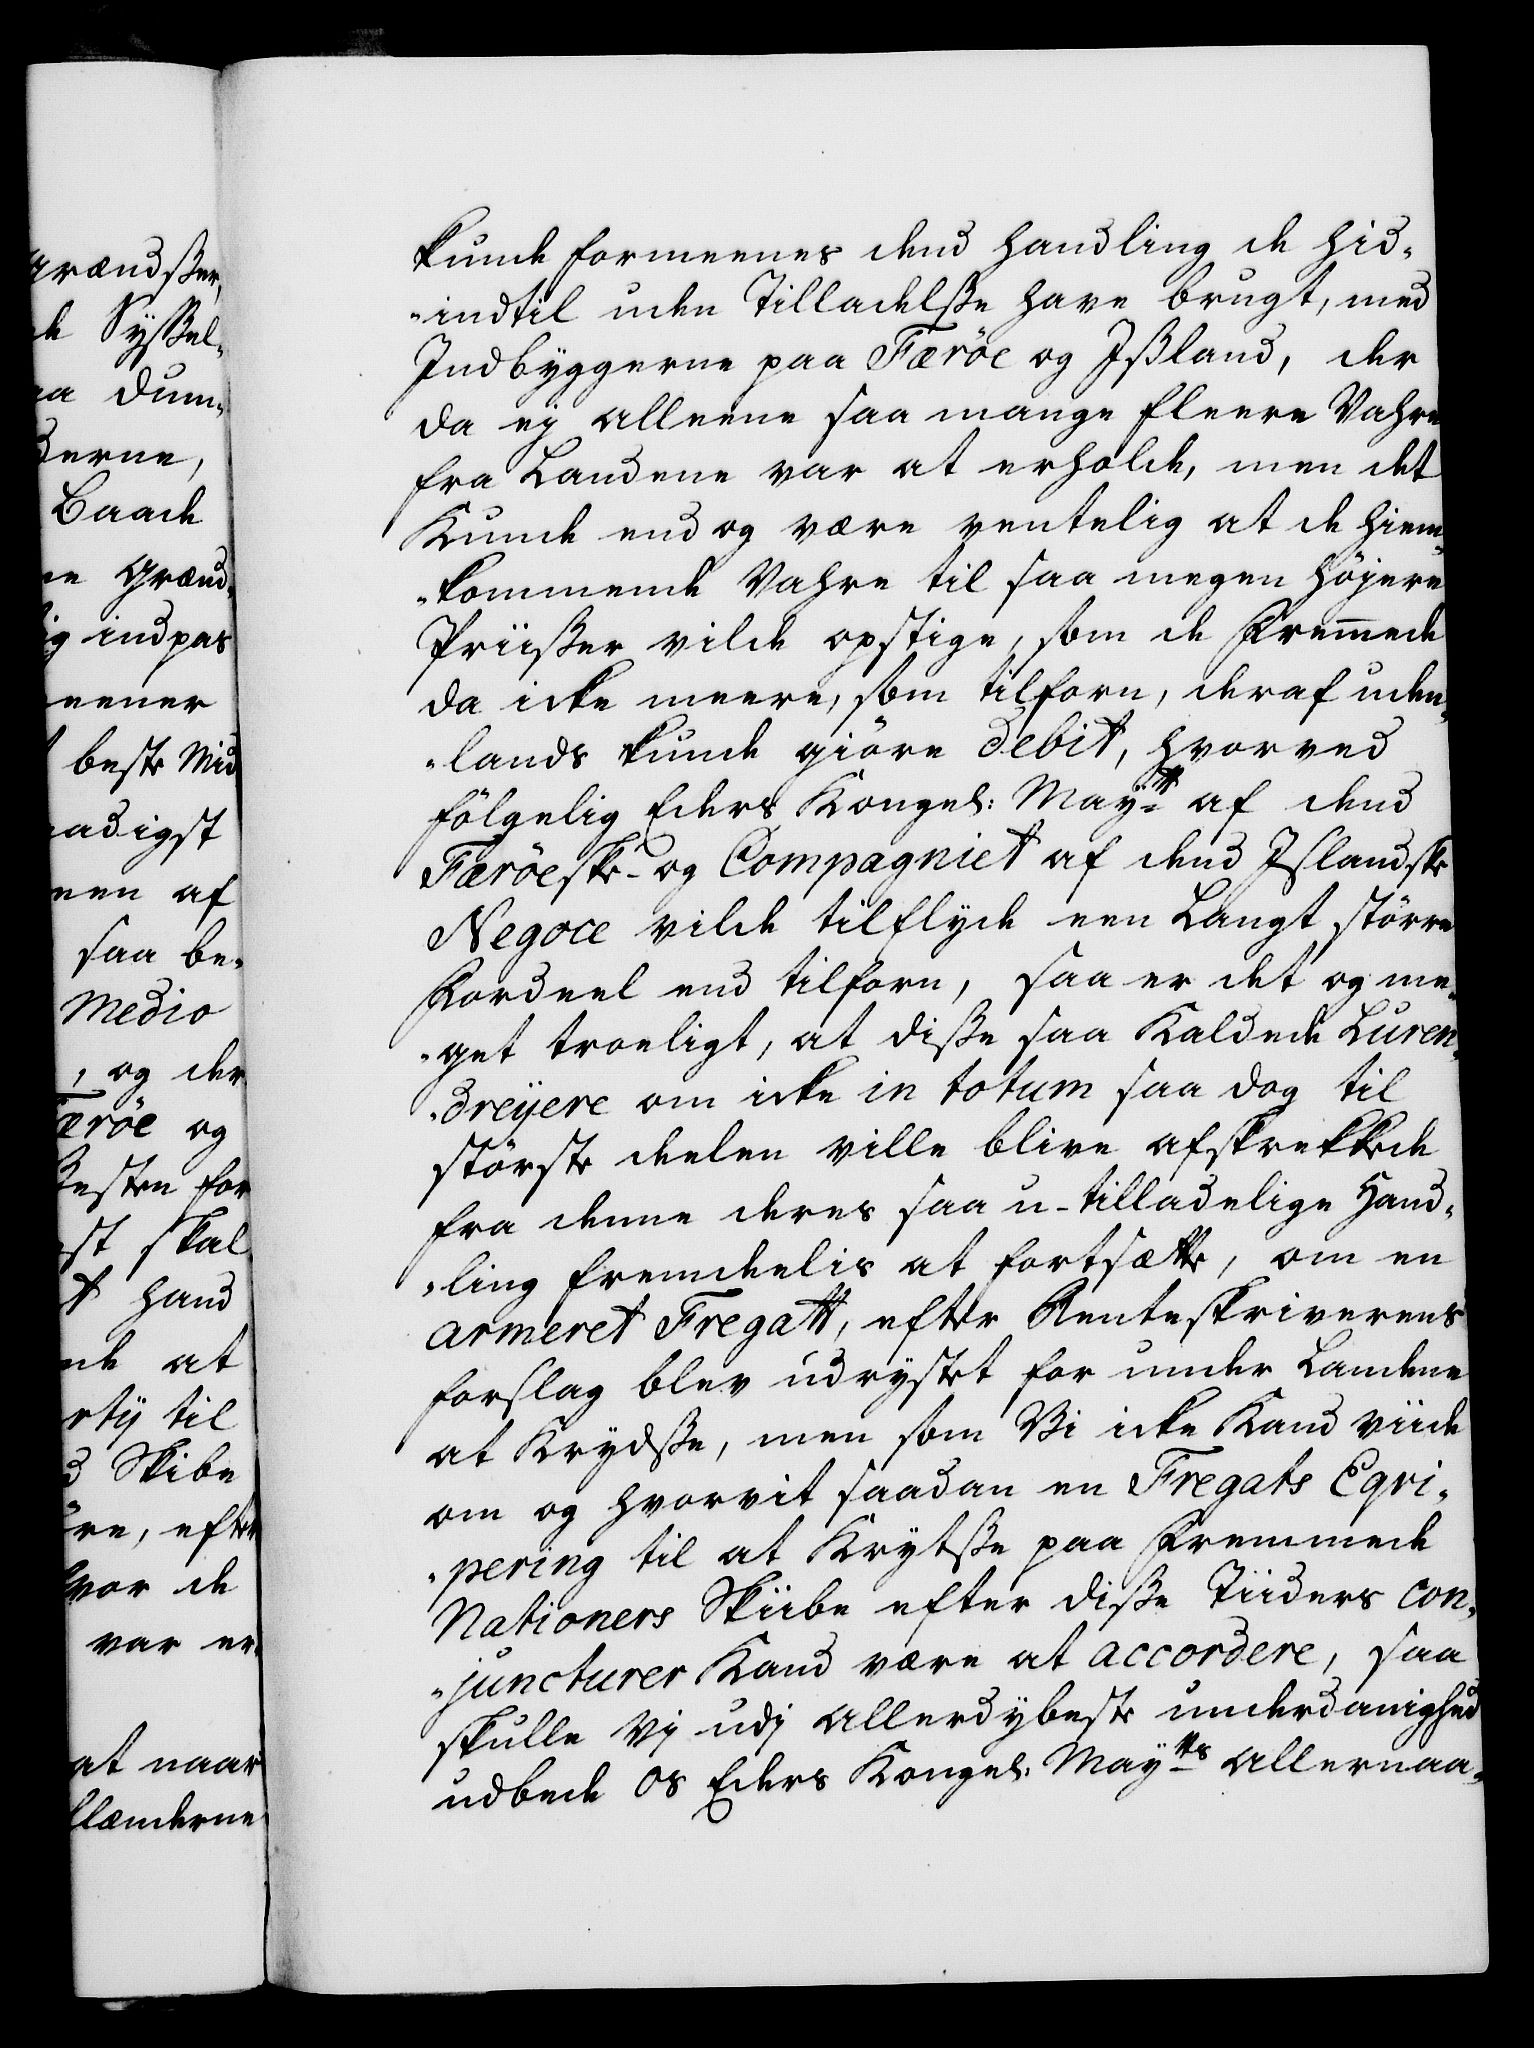 grændsser,
de Syssel-
aa dum-
derne,
Baade
ne grænd-
ig indpas
neener
beste Mid
aadigst
nen af
saa be-
Medio
, og der
ærøe og
Besten for
st skal
t hand
nde at
rtÿ til
d Skibe
öre, efter
hvor de
var er-
at naar
lænderne
kunde formeenes dend handling de hid-
-indtil uden Tilladelsse have brugt, med
Indbyggerne paa Færöe og Jssland, der
da ej alleene saa mange fleere Vahre
fra Landene var at erholde, men det
Kunde end og være ventelig at de hiem-
-kommende Vahre til saa megen höjere
Priisser vilde opstige, som de Fremmede
da icke meere, som tilforn, deraf uden-
-lands kunde giöre Debit, hvorved
fölgelig Eders Kongel: Maÿtt af dend
Færöeske- og Compagniet af dend Jslandske
Negoce vilde tilflyde een Langt större
Fordeel end tilforn, saa er det og me-
-get troeligt, at disse saa Kaldede Luren-
-dreÿere om icke in totum saa dog til
störste deelen ville blive afskrekkede
fra denne deres saa u-tilladelige Hand-
-ling fremdeelis at fortsætte, om en
armeret Fregatt, efter Renteskriverens
forslag blev udrystet for under Landene
at Krÿdsse, men som Vi icke Kand viide
om og hvorvit saadan en Fregats Eqvi-
-pering til at Krÿtsse paa Fremmede
Nationers Skiibe efter disse Tiiders con-
-juncturer Kand være at accordere, saa
skulle Vj udj allerdybeste underdanighed
udbede os Eders Kongel: Maÿtts allernaa-